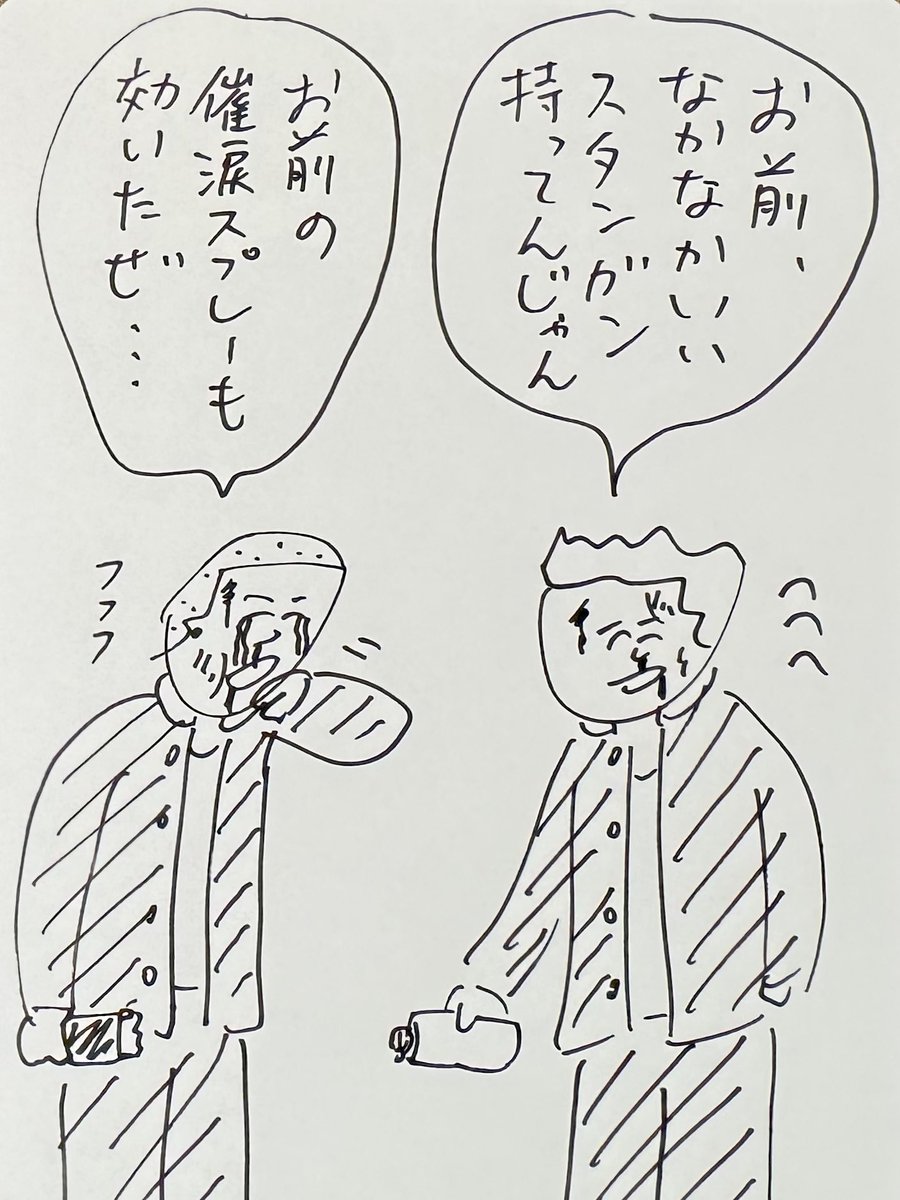 お前、
なかなかいい
スタンガン
持ってんじゃん
お前の
催涙スプレーも
効いたぜ...
へへへ
フフフ